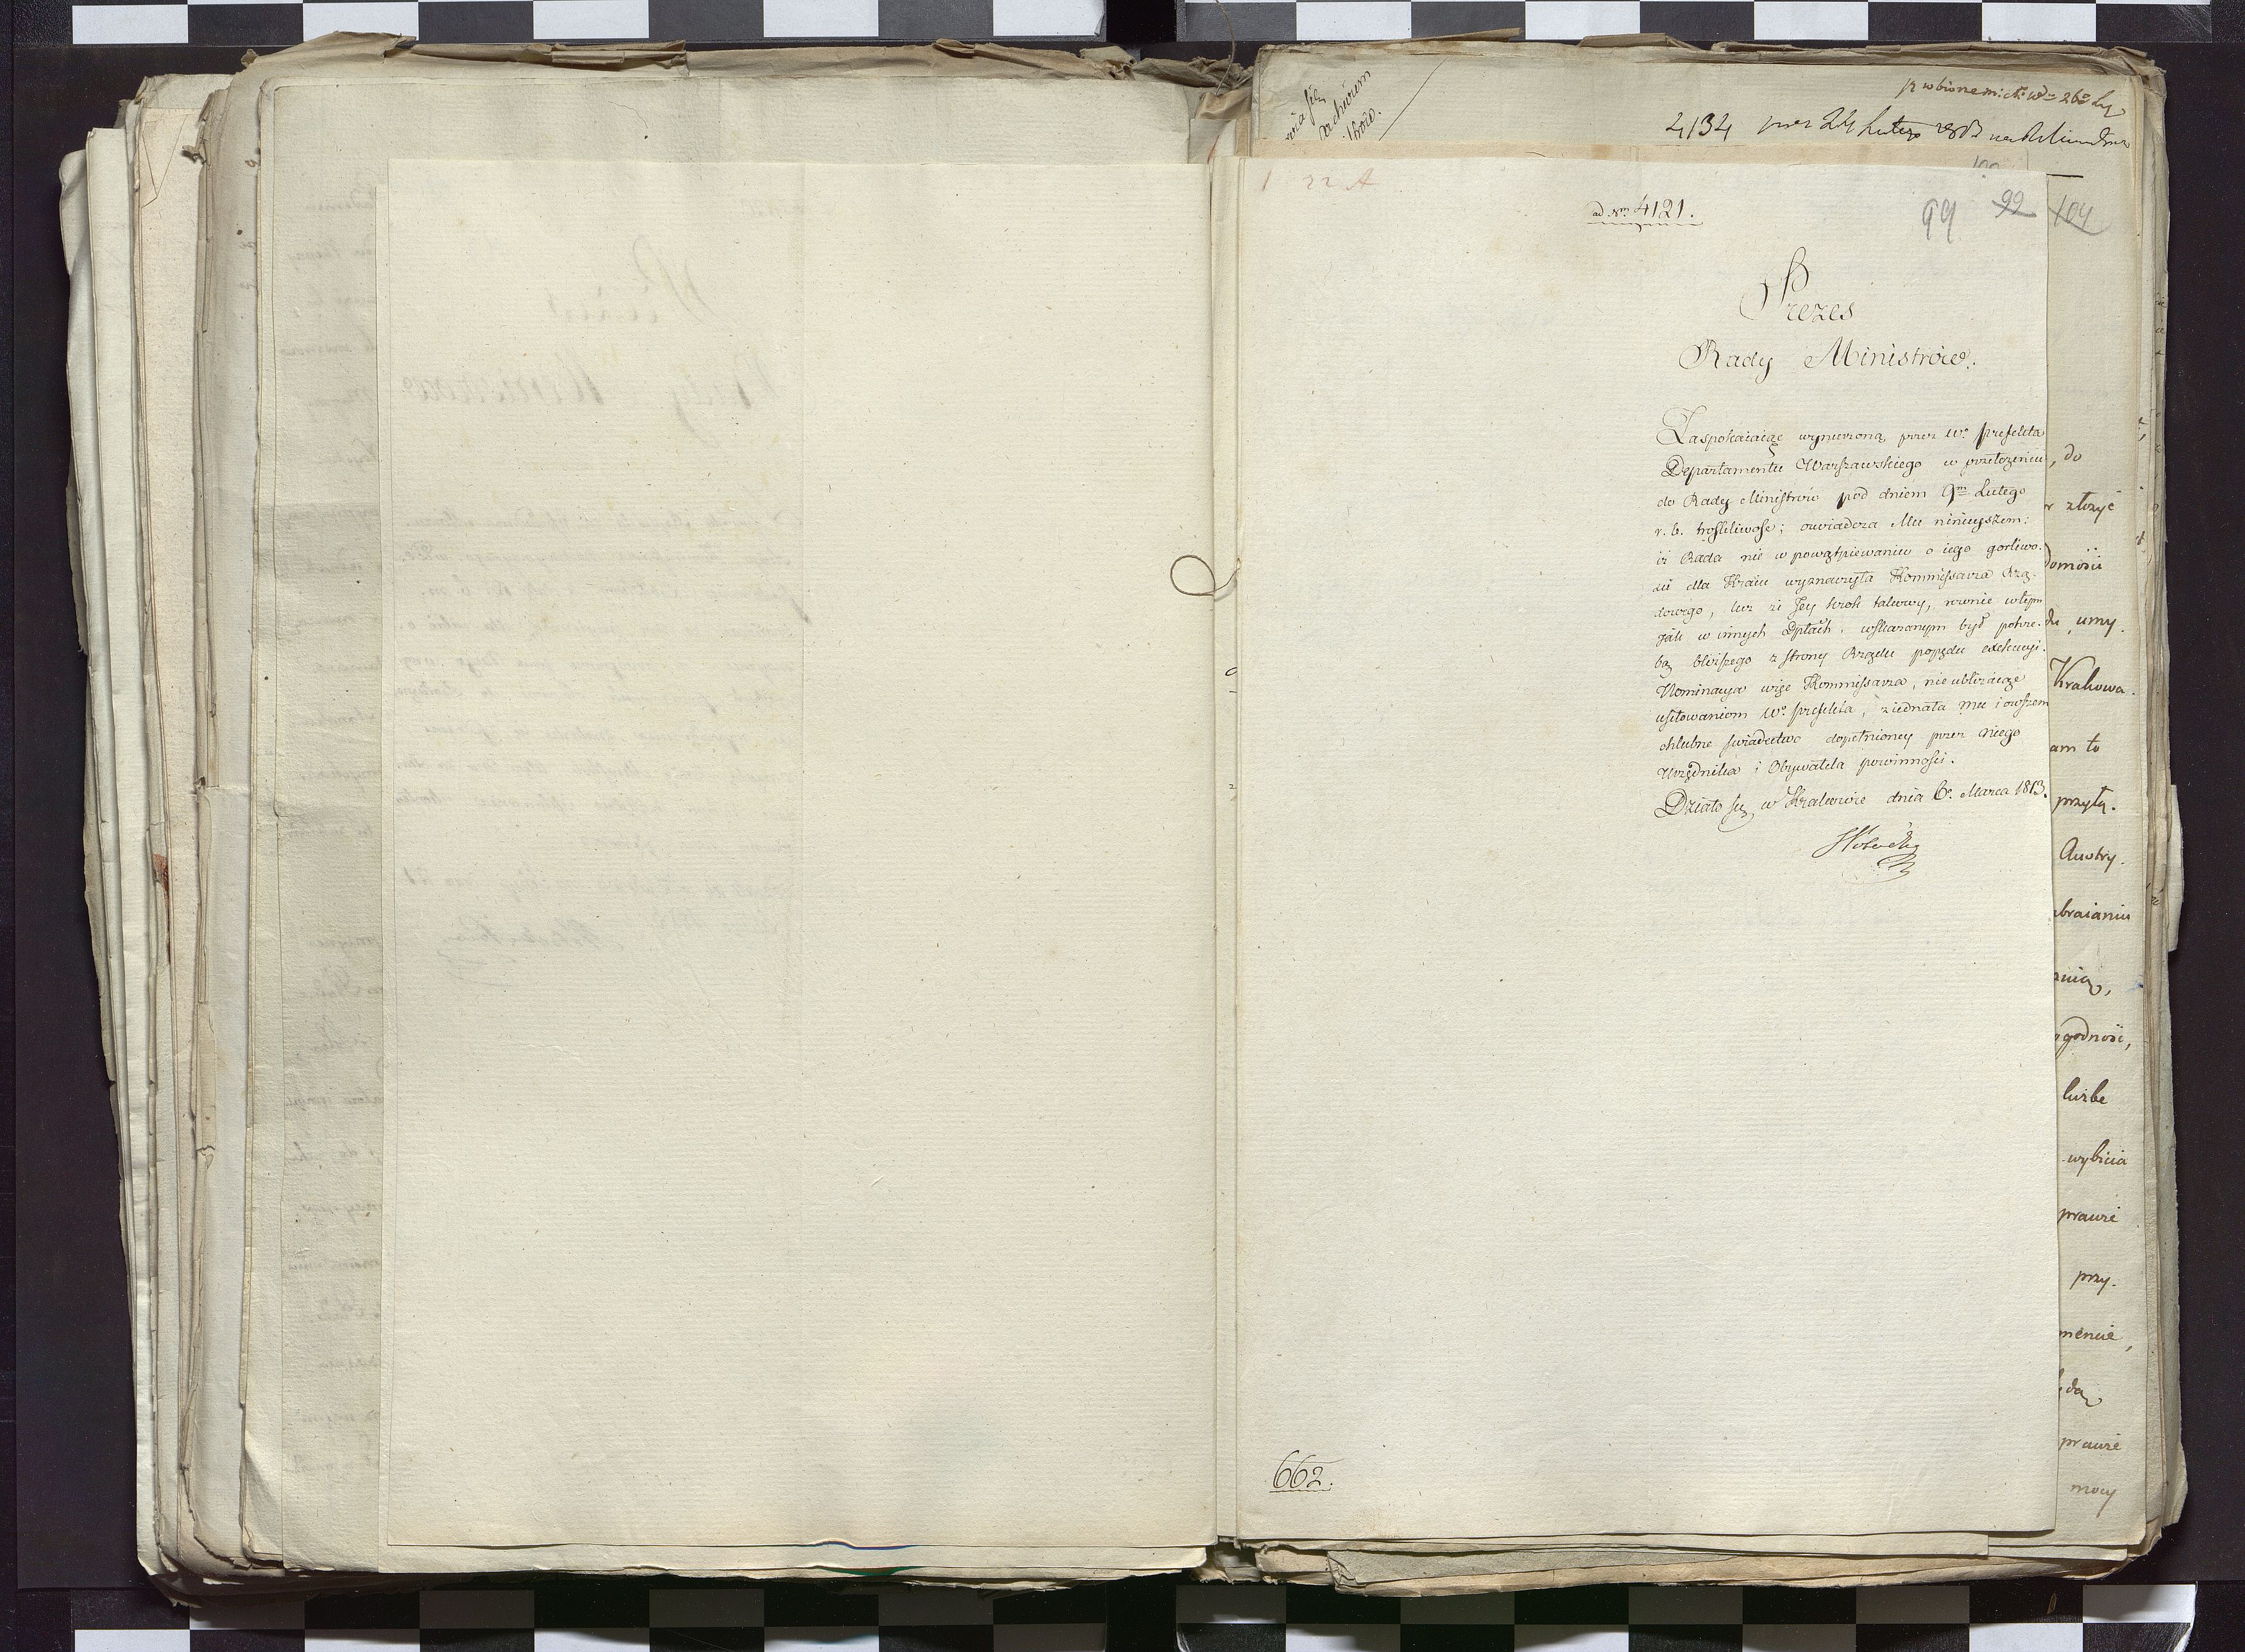 4134
ad Nm 4121.
99 99 104
Prezes
Rady Ministrów.
Zaspokaiaiąc wynurzoną przez Wo prefekta
Departamentu Warszawskiego w przełożeniu
do Rady Ministrów pod dniem 9m Lutego
r. b. troskliwość; oswiadcza Mu ninieyszem:
iż Rada nie w powątpiewaniu o iego gorliwo-
ści dla Kraiu wyznaczyła Kommissarza Rzą-
dowego, lecz że Jey krok takowy, rownie w tym
jak w innych Dptach, wskazanym był potrze-
bą bliższego z strony Rządu popędu exekucyi.
Nominacya więc Kommissarza, nieubliżaiąc
usiłowaniom Wo prefekta, ziednała mu i owszem
chlubne świadectwo dopełnioney przez niego
Urzędnika i Obywatela powinności.
Działo się w Krakowie dnia 6o Marca 1813.
662.
, do
złożyć
domości
umy.
Krakowa.
am to
przyłą.
Austry.
braianiu
godność,
liczbe
wybicia
prawie
przy-
mencie,
prawie
mocy